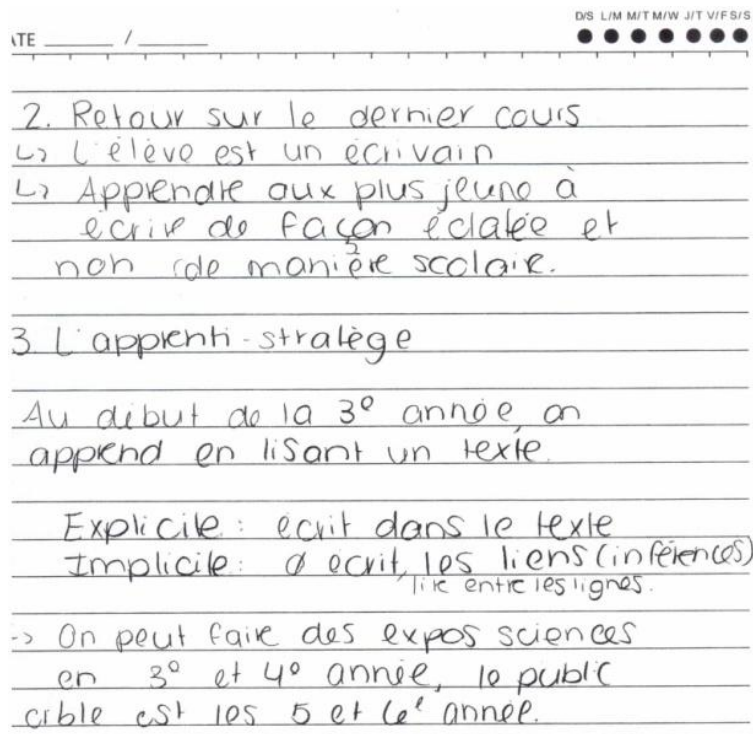 D/S L/M M/T M/W J/T V/F S/S
ATE ______ / ______
2. Retour sur le dernier cours
↳ L'élève est un écrivain
↳ Apprendre aux plus jeune à
écrire de façon éclatée et
non de manière scolaire.
3. L'apprenti-stratège
Au début de la 3e année, on
apprend en lisant un texte.
Explicite : écrit dans le texte
Implicite : Ø écrit, les liens (inférences)
lire entre les lignes.
-> On peut faire des expos sciences
en 3e et 4e année, le public
cible est les 5 et 6e année.